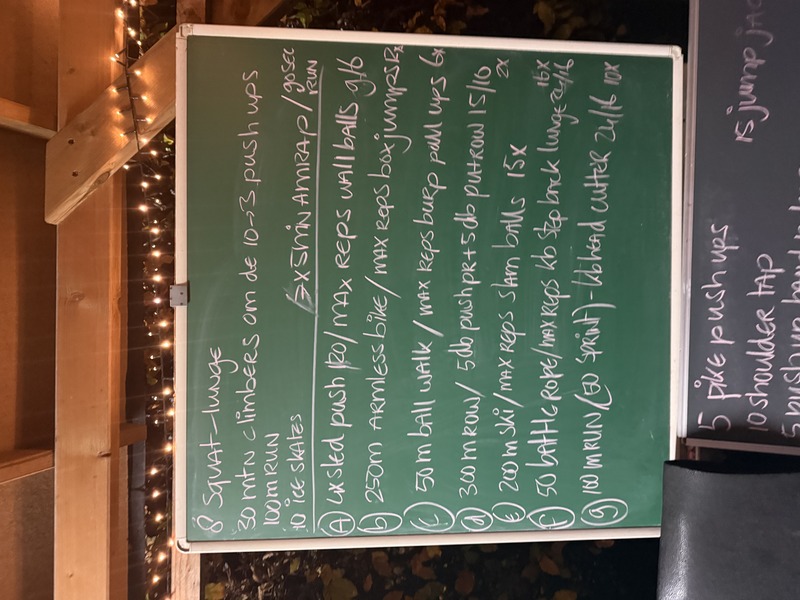 8 Squat-lunge
30 mtn climbers om de 10→3 push ups
100 m RUN
10 ice skates
7x 3min AMRAP / 90sec RUN
(A) 4x sled push 120 / MAX REPS WALL BALLS 9/6
(b) 250m ARMLESS bike / MAX REPS box jumps Rx
(c) 50 m ball WALK / MAX REPS burp pull ups 6x
(d) 300 m ROW / 5db push pR + 5 db put+ROW 15/10
(e) 200 m ski / MAX REPS slam balls 15x 2x
(f) 50 bAttle ROPE / MAX REPS kb step back lunge 24/16 16x
(g) 100 m RUN / (50 SPRINT) - kb head cutter 24/16 10x
5 pike push ups
10 shoulder tap
15 jump jac
5 push up hand